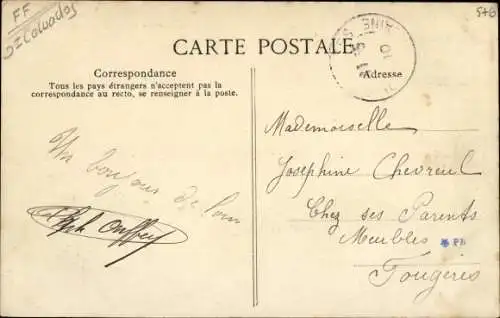 FF
Calvados
578
CARTE POSTALE
Correspondance
Tous les pays étrangers n'acceptent pas la
correspondance au recto, se renseigner à la poste.
Adresse
Un bonjour de loin
Mademoiselle
Joséphine Chevreul
Chez ses Parents
Meubles
PB
Fougères